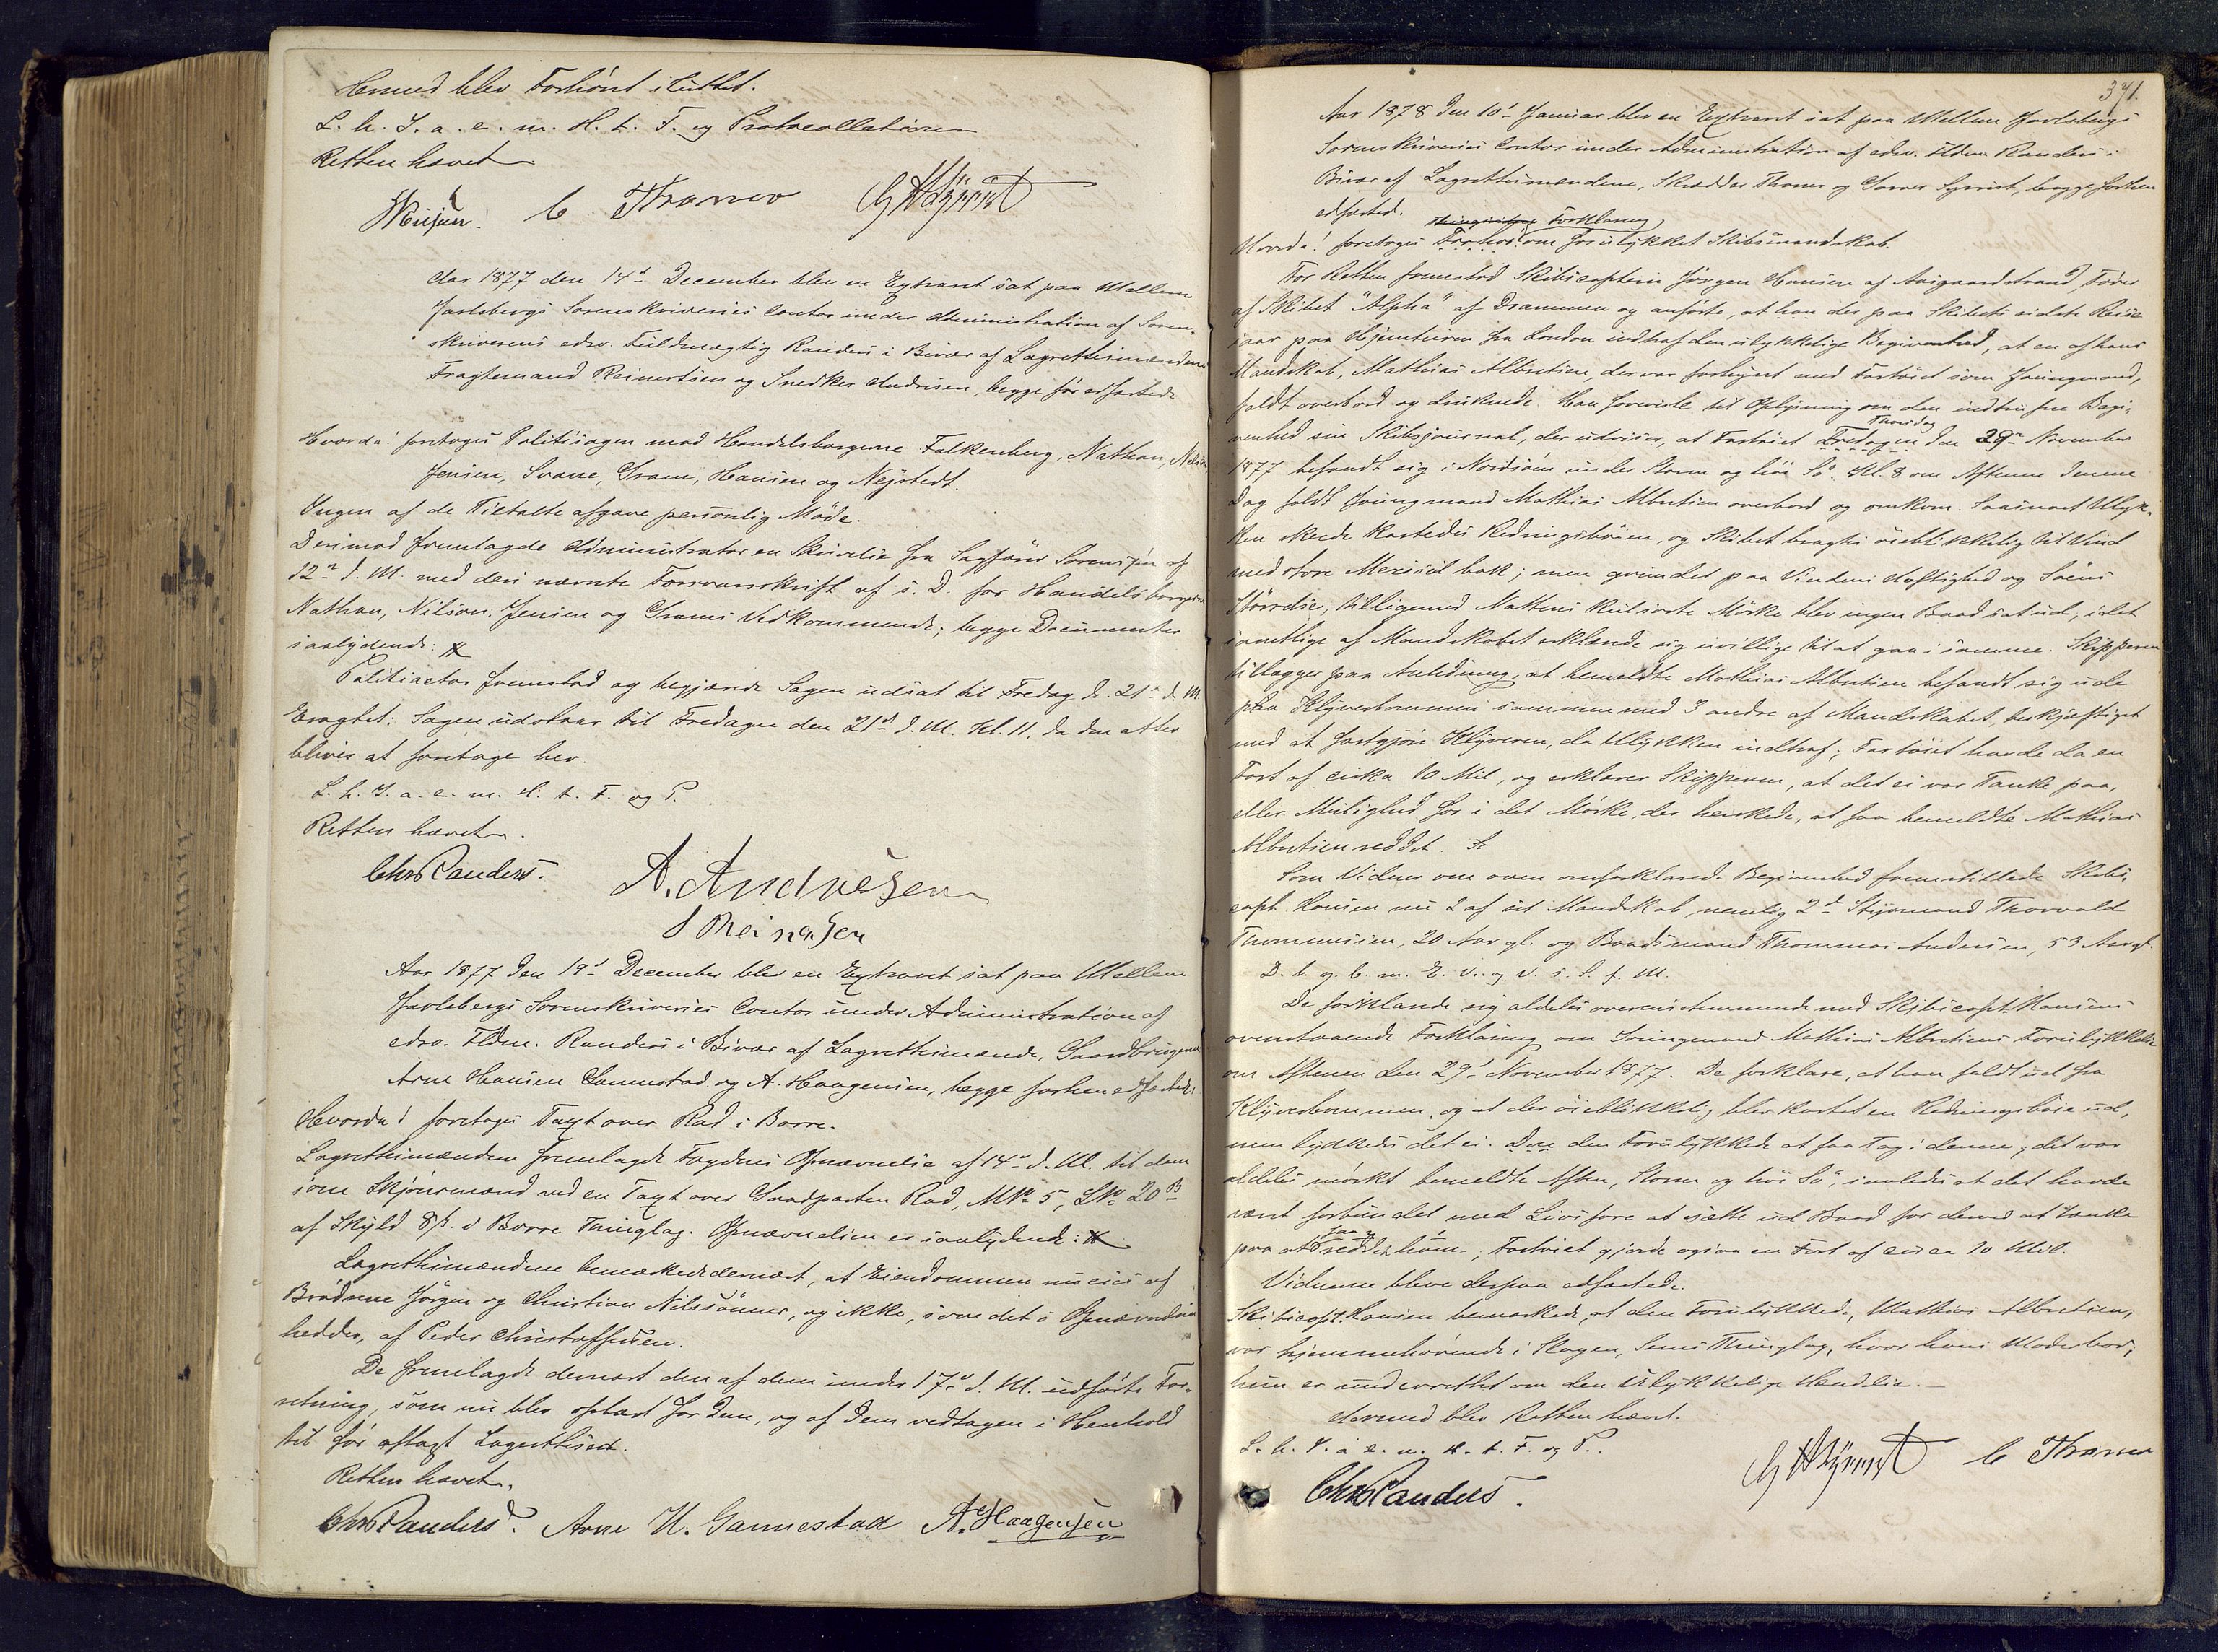 Hermed blev Forhøret sluttet.
L. h. S. a. e. m. H. t. F. og Protocollationen
Retten hævet
C Thranow G H Qvist
Aar 1877 den 14de December blev en Extraret sat paa Mellem
Jarlsbergs Sorenskriveries Contor under Administration af Soren-
skriverens edsv. Fuldmægtig Randers i Bivær af Lagrettesmændene
Fragtemand Reinertsen og Snedker Andresen, begge før edfæstede
Hvorda! foretoges Politisagen mod Handelsborgerne Falkenberg, Nathan, Nilson
Jensen, Svane, Gram, Hansen og Nejstedt.
Ingen af de Tiltalte afgave personlig Møde.
Derimod fremlagde Administrator en Skrivelse fra Sagfører Sørensen af
12te d. M. med deri nævnte Forsvarsskrift af s. D. for Handelsborgerne
Nathan, Nilson, Jensen og Grams Vedkommende; begge Documenter
saalydende:
Politiactor fremstod og begjærede Sagen udsat til Fredag d. 21de d. M.
Eragtet: Sagen udstaar til Fredagen den 21de d. M. Kl. 11, da den atter
bliver at foretage her.
L. h. S. a. e. m. H. t. F. og P.
Retten hævet.
Chr Randers. A. Andresen
Aar 1877 den 19de December blev en Extraret sat paa Mellem
Jarlsbergs Sorenskriveries Contor under Administration af
edsv. Fldm. Randers i Bivær af Lagrettesmændene, Gaardbrugerne
Arne Hansen Gannestad og A. Haagensen, begge forhen edfæstede
Hvorda! foretoges Taxt over Rød i Borre.
Lagrettesmændene fremlagde Fogdens Opnævnelse af 14de d. M. til dem
som Skjønsmænd ved en Taxt over Gaardparten Rød, MNo 5, LNo 20 B
af Skyld i Borre Thinglag. Opnævnelsen er saalydende:
Lagrettesmændene bemærkede dernæst, at Eiendommen nu eies af
Brødrene Jørgen og Christian Nilssønner, og ikke, som det i Opnævnelsen
heddes, af Peder Christoffersen.
De fremlagde dernæst den af dem under 17de d. M. udførte For-
retning, som nu blev oplæst for Dem, og af Dem vedtagen i Henhold
til før aflagt Lagrettesed.
Retten hævet.
Chr Randers. Arne H. Gannestad A. Haagensen
371.
Aar 1878 den 10de Januar blev en Extraret sat paa Mellem Jarlsbergs
Sorenskriveries Contor under Administration af edsv. Fldm Randers i
Bivær af Lagrettesmændene, Skrædder Thranow og Qvist, begge forhen
edfæsted.
Forklaring
Hvorda! foretoges Forhør om forulykket Skibsmandskab.
For Retten fremstod Skibscaptein Jørgen Hansen af Aasgaardstrand, Fører
af Skibet "Alpha" af Drammen og anførte, at han der paa Skibets sidste Reise
iaar paa Hjemturen fra London indtraf den ulykkelige Begivenhed, at en af hans
Mandskab, Mathias Albretsen, der var forhyret med Fartøiet som Jungmand,
faldt overbord og druknede. Han foreviste til Oplysning om den indtrufne Begi-
Thorsdag
venhed sin Skibsjournal, der udviser, at Fartøiet Fredagen den 29de November
1877 befandt sig i Nordsøen under Storm og høi Sø. Kl. 8 om Aftenen denne
Dag faldt Jungmand Mathias Albretsen overbord og omkom. Saasnart Ulyk-
ken skede kastedes Redningsbøien, og Skibet bragtes øieblikkelig til Vind
med store Mersseil bak; men grundet paa Vindens Heftighed og Søens
Størrelse, tilligemed Nattens kulsorte Mørke blev ingen Baad sat ud, idet
samtlige af Mandskabet erklærede sig uvillige til at gaa i samme. Skipperen
tillægger paa Anledning, at bemeldte Mathias Albretsen befandt sig ude
paa Klyverbommen sammen med 3 andre af Mandskabet, beskjæftiget
med at fastgjøre Klyveren, da Ulykken indtraf; Fartøiet havde da en
Fart af cirka 10 Mil, og erklærer Skipperen, at det ei var Tanke paa,
eller Mulighed for i det Mørke, der herskede, at faa bemeldte Mathias
Albretsen reddet.
Som Vidner om oven omforklarede Begivenhed fremstillede Skibs-
capt. Hansen nu 2 af sit Mandskab, nemlig 2den Styrmand Thorvald
Thommesen, 20 Aar gl. og Baadsmand Thommas Andersen, 53 Aar gl.
De forklarede sig aldeles overensstemmende med Skibscapt. Hansens
ovenstaaende Forklaring om Jungmand Mathias Albretsens Forulykkelse
om Aftenen den 29de November 1877. De forklare, at han faldt ud fra
Klyverbommen, og at der øieblikkelig blev kastet en Redningsbøie ud,
men lykkedes det ei den Forulykkede at faa Tag i denne; det var
aldeles mørkt bemeldte Aften, Storm og høi Sø, saaledes at det havde
været forbundet med Livsfare at sætte ud Baad for derved at tænke
faa
paa at redde ham; Fartøiet gjorde ogsaa en Fart af circa 10 Mil.
Vidnerne bleve derpaa edfæstede.
Skibscapt. Hansen bemærkede, at den Forulykkede, Mathias Albretsen,
var hjemmehørende i Slagen, Sems Thinglag, hvor hans Moder bor;
hun er underrettet om den ulykkelige Hændelse.
Hermed blev Retten hævet.
L. h. S. a. e. m. H. t. F. og P.
Chr Randers. G H Qvist C Thranow